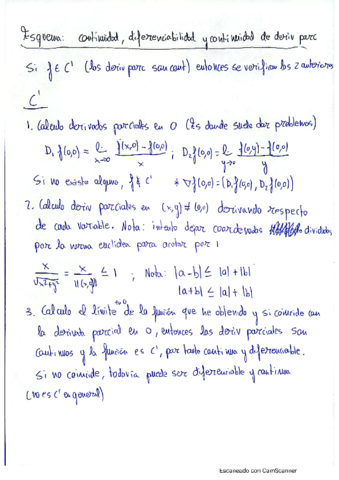 Esquema: continuidad, diferenciabilidad y continuidad de deriv parc
Si f ∈ C' (las deriv parc son cont) entonces se verifican los 2 anteriores
C'
1. Calculo derivadas parciales en 0 (Es donde suele dar problemas)
D₁ f(0,0) = lim x→0 f(x,0) - f(0,0) / x ; D₂ f(0,0) = lim y→0 f(0,y) - f(0,0) / y
Si no existe alguna, f ∉ C' * ∇f(0,0) = (D₁ f(0,0), D₂ f(0,0))
2. Calculo deriv parciales en (x,y) ≠ (0,0) derivando respecto
de cada variable. Nota: intento dejar coordenadas divididas
por la norma euclídea para acotar por 1
x / √x²+y² = x / ||(x,y)|| ≤ 1 ; Nota: |a-b| ≤ |a| + |b|
|a+b| ≤ |a| + |b|
3. Calculo el límite en 0 de la función que he obtenido y si coincide con
la derivada parcial en 0, entonces las deriv parciales son
continuas y la función es C', por tanto continua y diferenciable.
Si no coincide, todavía puede ser diferenciable y continua
(no es C' en general)
Escaneado con CamScanner